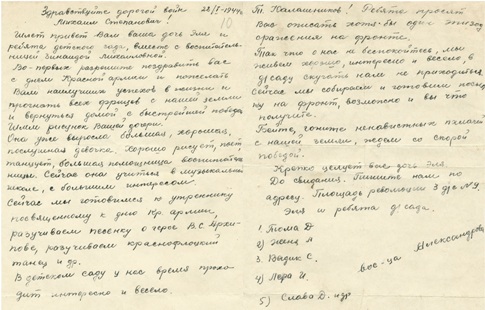 Здравствуйте дорогой воин 22/I-1944г
Михаил Степанович!
Шлет привет Вам ваша дочь Эля и
ребята детского сада, вместе с воспитатель-
ницей Зинаидой Михайловной.
Во-первых разрешите поздравить вас
с днем Красной армии и пожелать
Вам наилучших успехов в жизни и
прогнать всех фрицев с нашей земли
и вернуться домой с быстрейшей победой
Шлем рисунок Вашей дочери.
Она уже выросла большая, хорошая,
послушная девочка. Хорошо рисует, поет
танцует, большая помощница воспитатель-
ницы. Сейчас она учиться в музыкальной
школе, с большим интересом.
Сейчас мы готовимся к утреннику
посвященному к дню Кр. армии,
разучиваем песенку о герое В.С. Архи-
пове, разучиваем краснофлоцкий
танец и др.
В детском саду у нас время прохо-
дит интересно и весело.
10
Т. Калашников! Ребята просят
Вас описать хотя-бы один эпизод
сражения на фронте.
Так что о нас не беспокойтесь, мы
живем хорошо, интересно и весело, в
д/саду скучать нам не приходиться.
Сейчас мы собираем и готовим посыл-
ку на фронт, возможно и вы что
получите.
Бейте, гоните ненавистных
с нашей земли, ждем со скорой
победой.
Крепко целует вас дочь Эля.
До свидания. Пишите нам по
адресу. Площадь революции 3 д/с №9.
Эля и ребята д/сада.
1. Тома Д
2) Женя Л
3. Вадик С.
4) Лера И.
5) Слава Д. и др
вос-ца Александрова